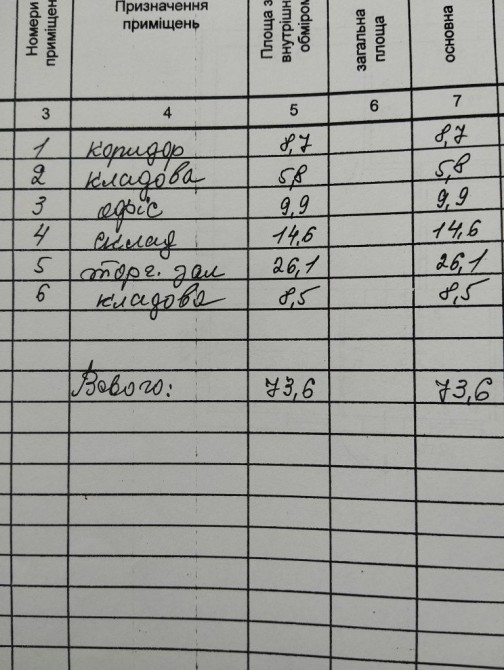 Номери приміщен
Призначення приміщень
Площа з внутрішн обміром
загальна площа
основна
3 4 5 6 7
1 коридор 8,7 8,7
2 кладова 5,8 5,8
3 офіс 9,9 9,9
4 склад 14,6 14,6
5 торг. зал 26,1 26,1
6 кладова 8,5 8,5
Всього: 73,6 73,6